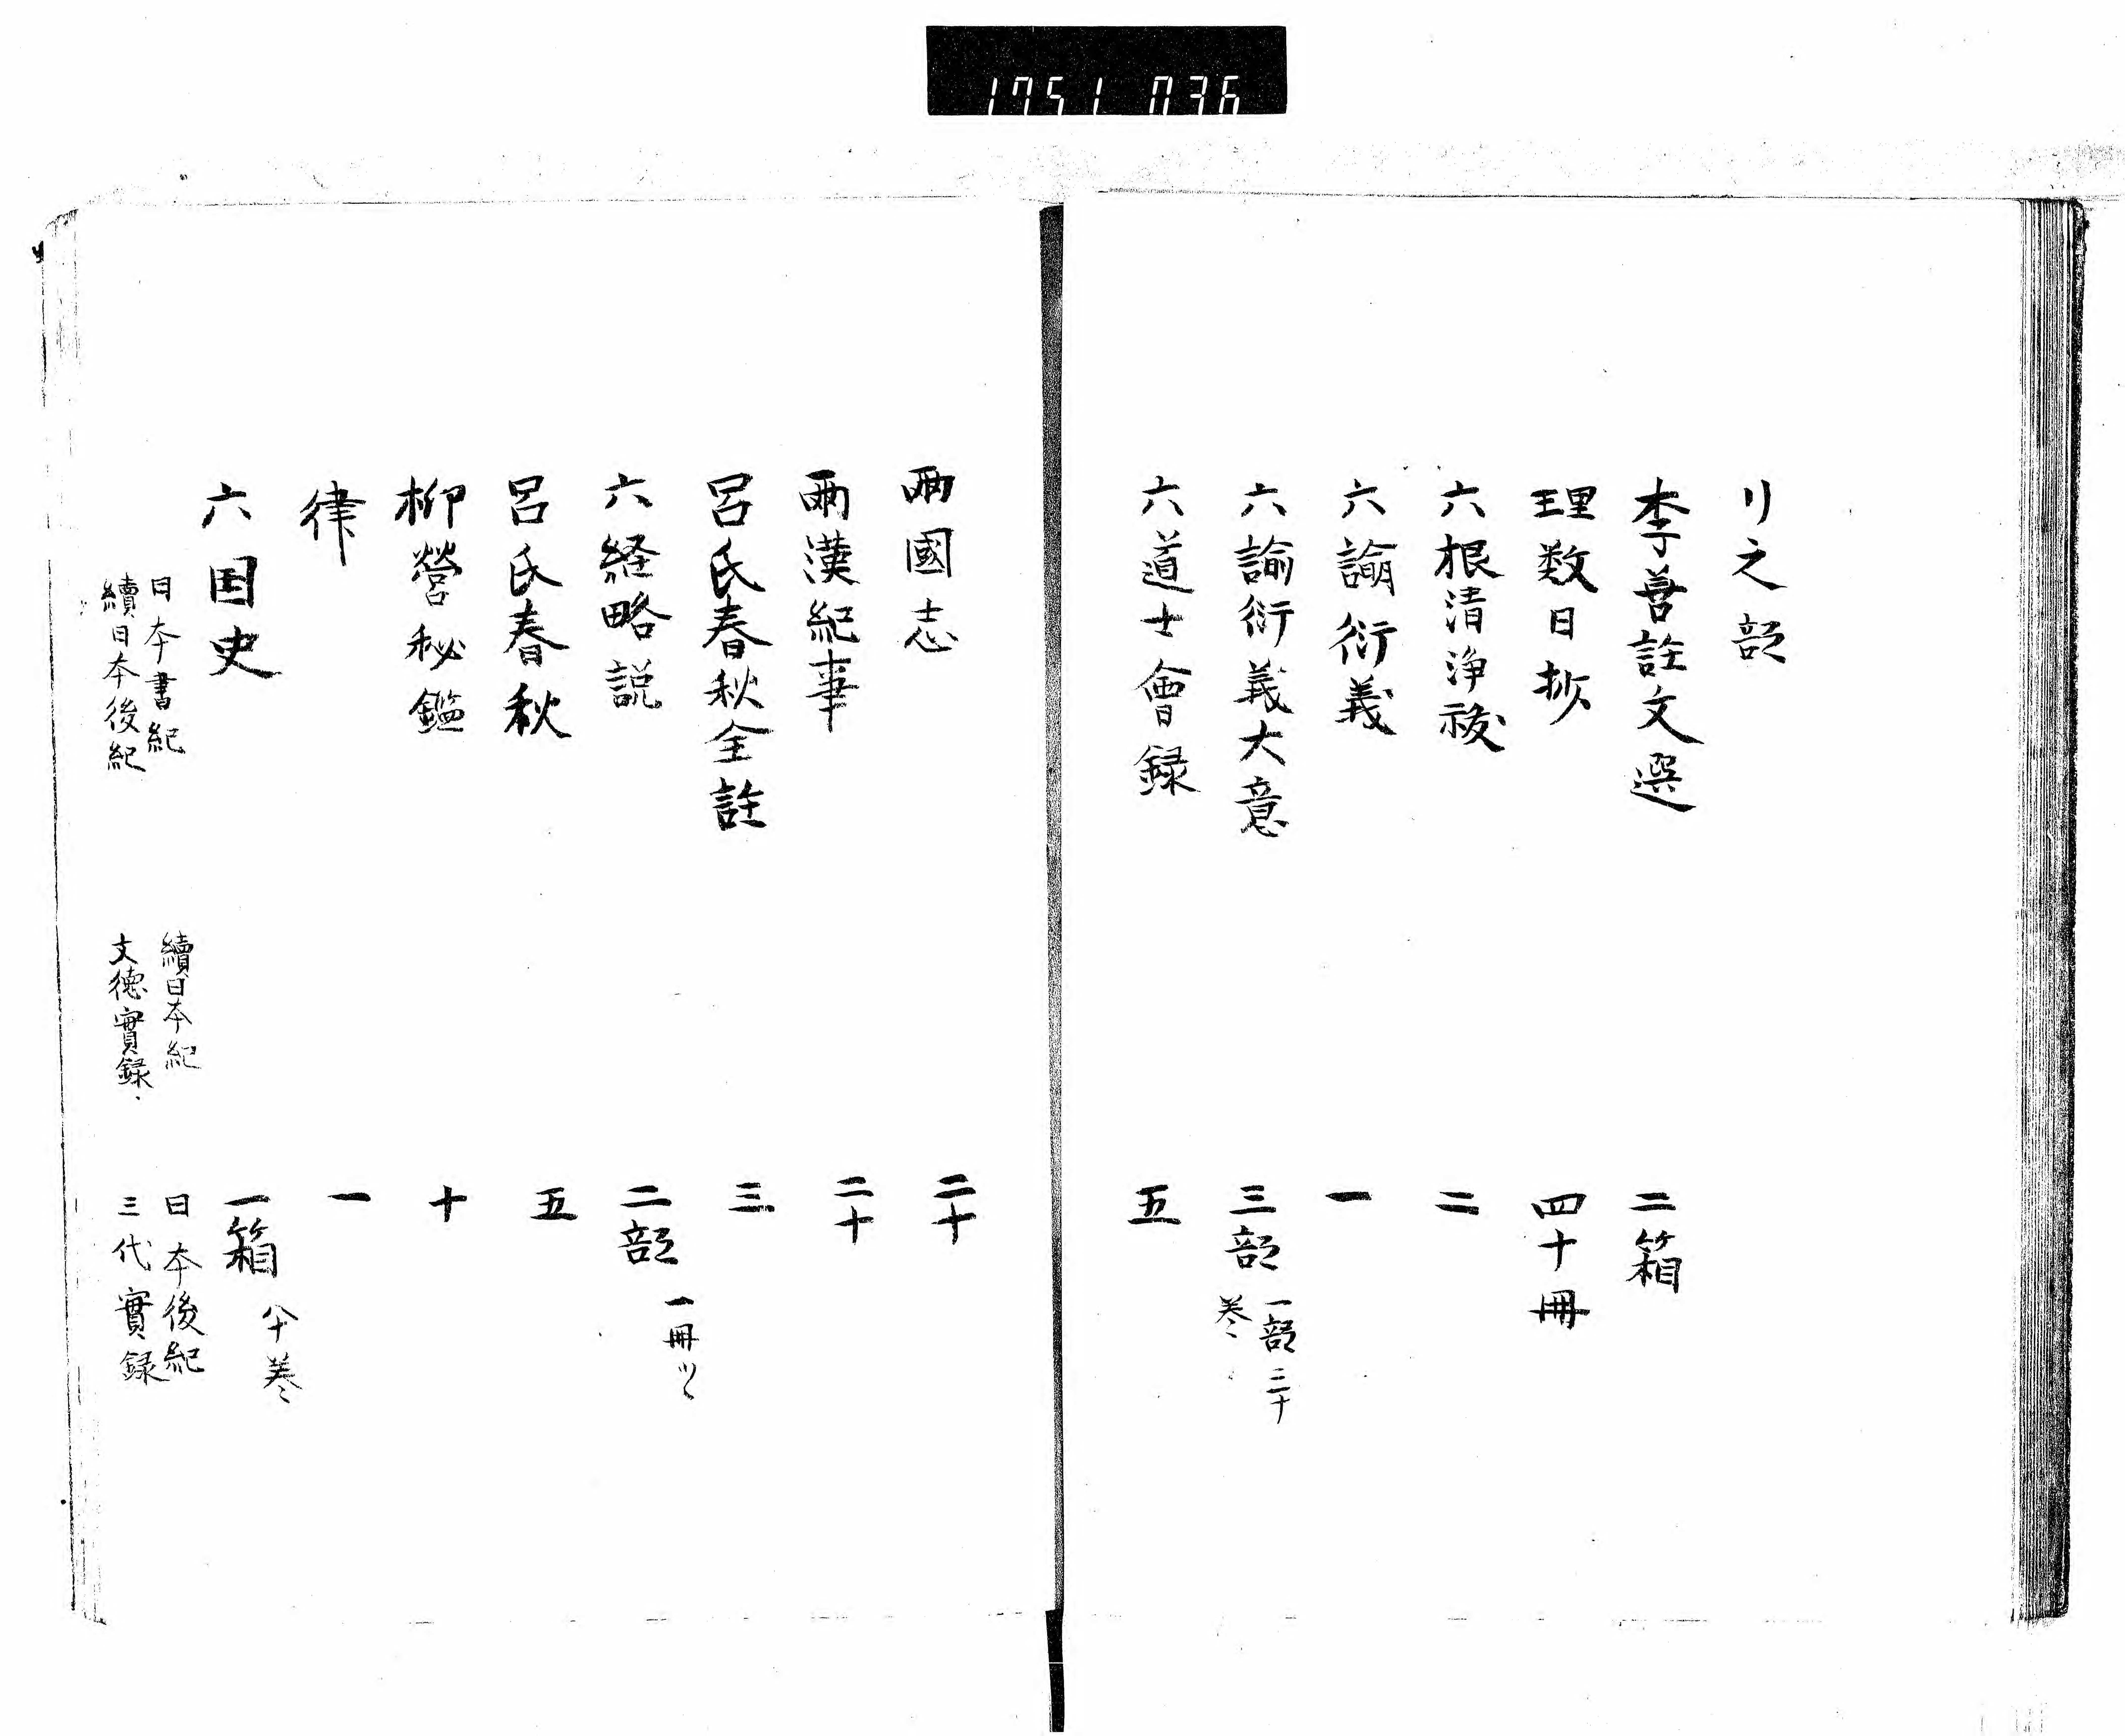 1751 036
リ之部
李善註文選 二箱
理数日抄 四十冊
六根清浄祓 二
六諭衍義 一
六諭衍義大意 三部 一部三十巻
六道士會録 五
兩國志 二十
兩漢紀事 二十
呂氏春秋全註 三
六経略説 二部 一冊ツヽ
呂氏春秋 五
柳營秘鑑 十
律 一
六国史 一箱 巻
日本書紀 續日本紀 日本後紀
續日本後紀 文徳實録 三代實録